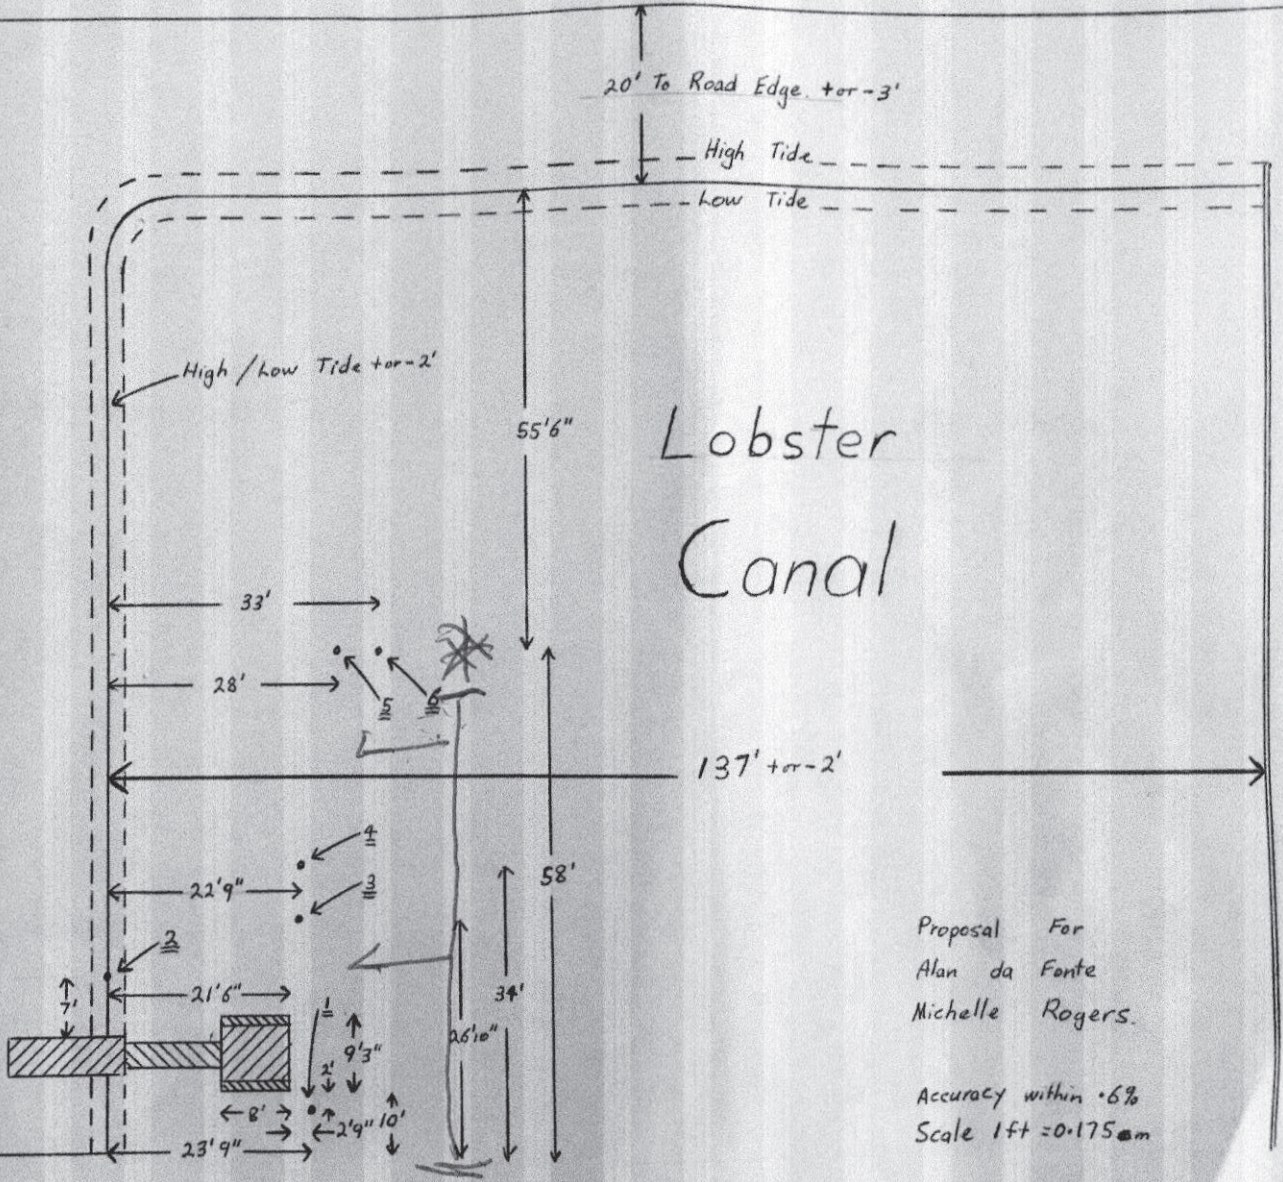 20' To Road Edge. + or - 3'
High Tide
Low Tide
High / Low Tide + or - 2'
55'6"
Lobster
Canal
33'
28'
5
6
137' + or - 2'
4
58'
22'9"
3
2
7'
21'6"
1
34'
26'10"
9'3"
2'
8'
2'9"
10'
23'9"
Proposal For
Alan da Fonte
Michelle Rogers.
Accuracy within .6%
Scale 1ft = 0.175